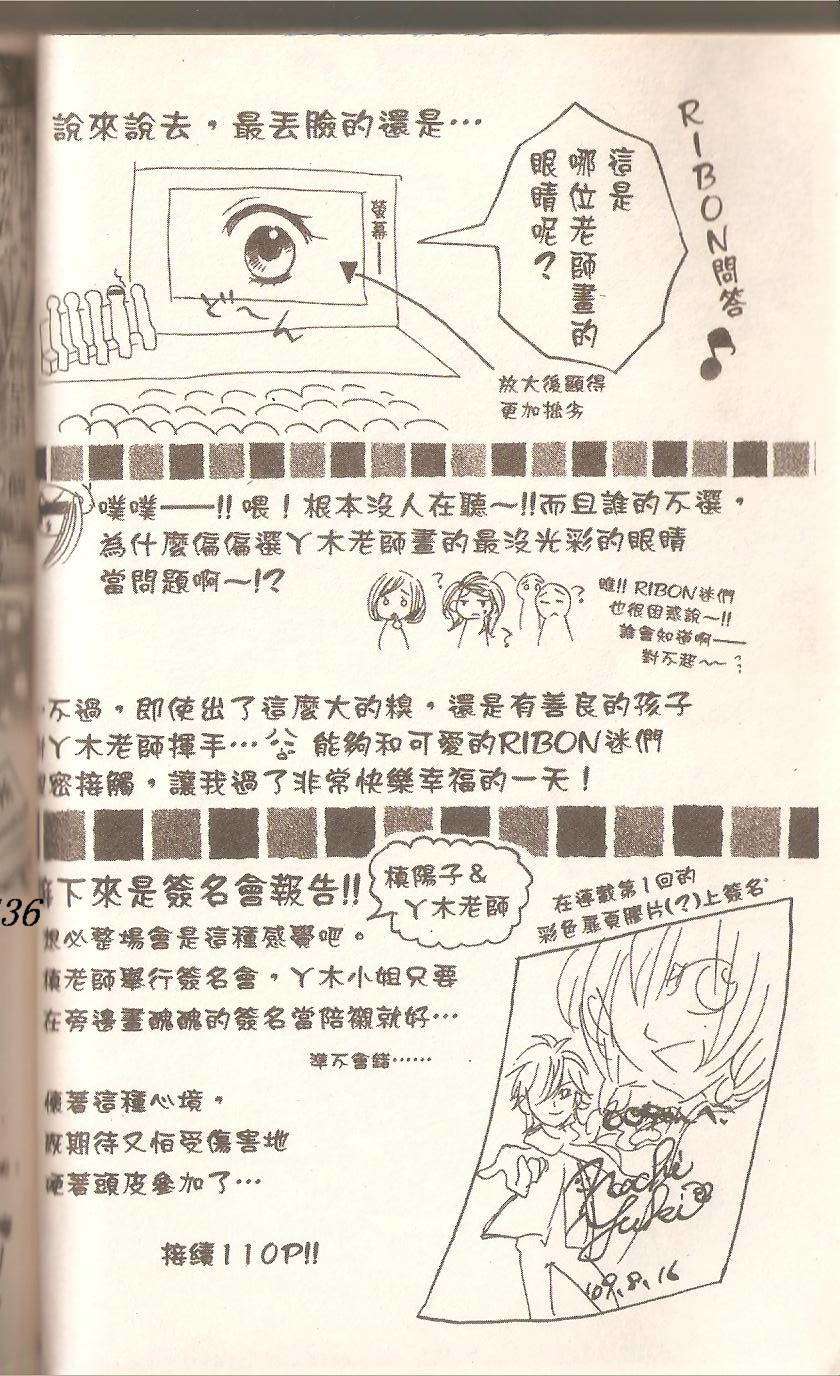 RIBON問答
說來說去，最丟臉的還是…
這是
哪位老師畫的
眼睛呢？
螢幕
ど〜ん
放大後顯得
更加拙劣
噗噗——!! 喂！根本沒人在聽～!!而且誰的不選，
為什麼偏偏選丫木老師畫的最沒光彩的眼睛
當問題啊～!?
瞧!! RIBON迷們
也很困惑說～!!
誰會知道啊——
對不起～～
不過，即使出了這麼大的糗，還是有善良的孩子
丫木老師揮手… 能夠和可愛的RIBON迷們
密接觸，讓我過了非常快樂幸福的一天！
下來是簽名會報告!!
槙陽子&
丫木老師
想必整場會是這種感覺吧。
槙老師舉行簽名會，丫木小姐只要
在旁邊畫醜醜的簽名當陪襯就好…
準不會錯……
懷著這種心境，
既期待又怕受傷害地
硬著頭皮參加了…
接續110P!!
在連載第1回的
彩色扉頁膠片(?)上簽名
'09.8.16
36